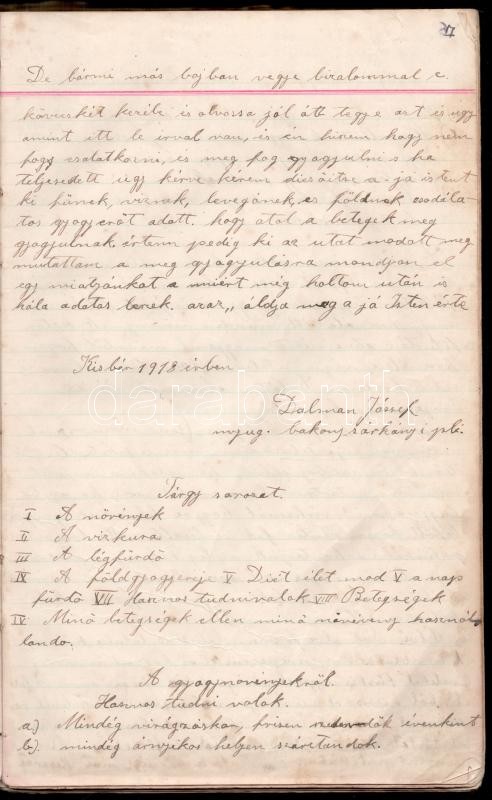 17
De bármi más bajban vegye bizalommal e
könvecskét kezébe is olvossa jól átt tegye azt is ugy
amint itt le irval van, és én hiszem hogy nem
fog csalatkozni, és meg fog gyagyulni s ha
teljesedett ugy kérve kérem dicsőitse a já istent
ki fünek, viznak, levegőnek, es földnek csodála-
tos gyogyerőt adott. hogy átal a betegek meg
gyagyulnak. értem pedig ki az utat modott meg
mutattam a meg gyagyulásra mondjon el
egy miatyánkot a miért még holtom után is
hála adatos lenek. azaz,, áldja meg a já Isten érte
Kisbér 1918 évben
Dalman József
nyug. bakonysárkányi plé.
Tárgy sarozat.
I A növények
II A vizkura
III A légfürdő
IV A földgyagyereje V Diét élet mod V a nap
fürdő VII hasznos tudnivalok VIII Betegségek
IV Minő betegségek ellen minő növény használ
landó.
A gyagynövényekről.
Hasznos tudni valok.
a.) Mindég virágzáskor, frisen szedendők évenkint
b). mindég árnyékos helyen száritandok.
darabanth